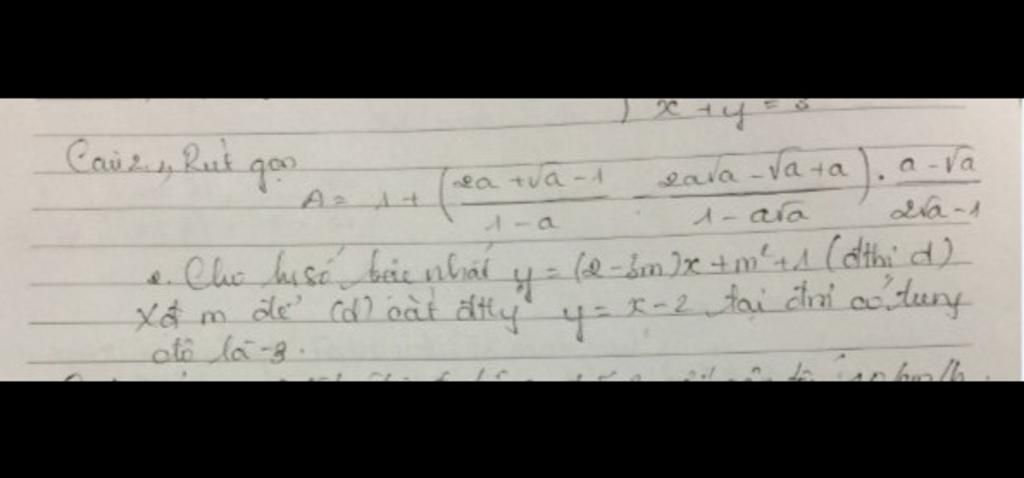 x + y = 3
Câu 2. 1, Rút gọn
A = 1 + ( (2a + √a - 1)/(1 - a) - (2a√a - √a + a)/(1 - a√a) ) . (a - √a)/(2√a - 1)
2. Cho hsố bậc nhất y = (2 - 3m)x + m² + 1 (đthị d)
Xđ m để (d) cắt đt y = x - 2 tại đ' có tung
độ là -3.